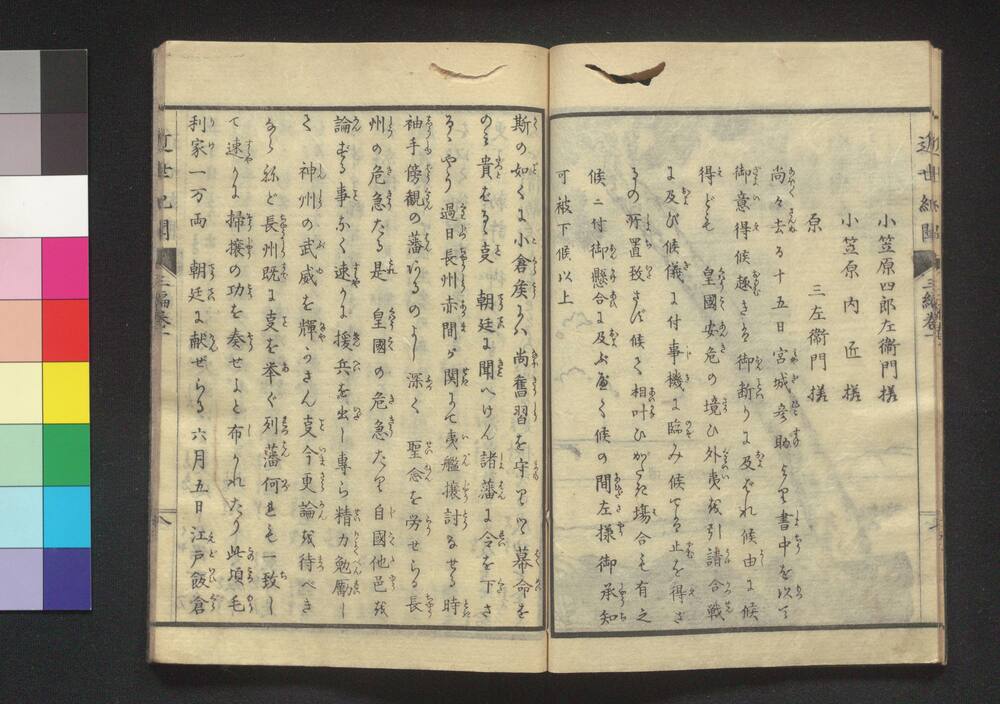 近世紀聞 三編巻一
小笠原四郎左衞門様
小笠原内匠様
原三左衞門様
尚々去る十五日宮城彦助よりも書中を以て
御意得候趣きも御斷りに及ばれ候由に候
得ども 皇國安危の境ひ外夷を引請合戰
に及び候儀に付事機に臨み候ては止を得ざ
るの所置致さず候て相叶ひがたき塲合も有之
候ニ付御懸合に及ぶべく候の間左様御承知
可被下候以上
斯の如くに小倉矦にハ尚舊習を守りて幕命を
のミ貴をるゝ支 朝廷に聞へけん諸藩に令を下さ
るゝやう過日長州赤間が関にて夷艦攘討なせる時
袖手傍観の藩あるのよし深く 聖念を労せらる長
州の危急たる是 皇國の危急たり自國他邑を
論ずる事なく速かに援兵を出し專ら精力勉勵し
て 神州の武威を輝かさん支今更論を待べき
なら祢ど長州既に支を挙ぐ列藩何れも一致し
て速かに掃攘の功を奏せよと布かれたり此頃毛
利家一万両 朝廷に献ぜらる六月五日江戸飯倉
近世紀聞 三編巻一
八